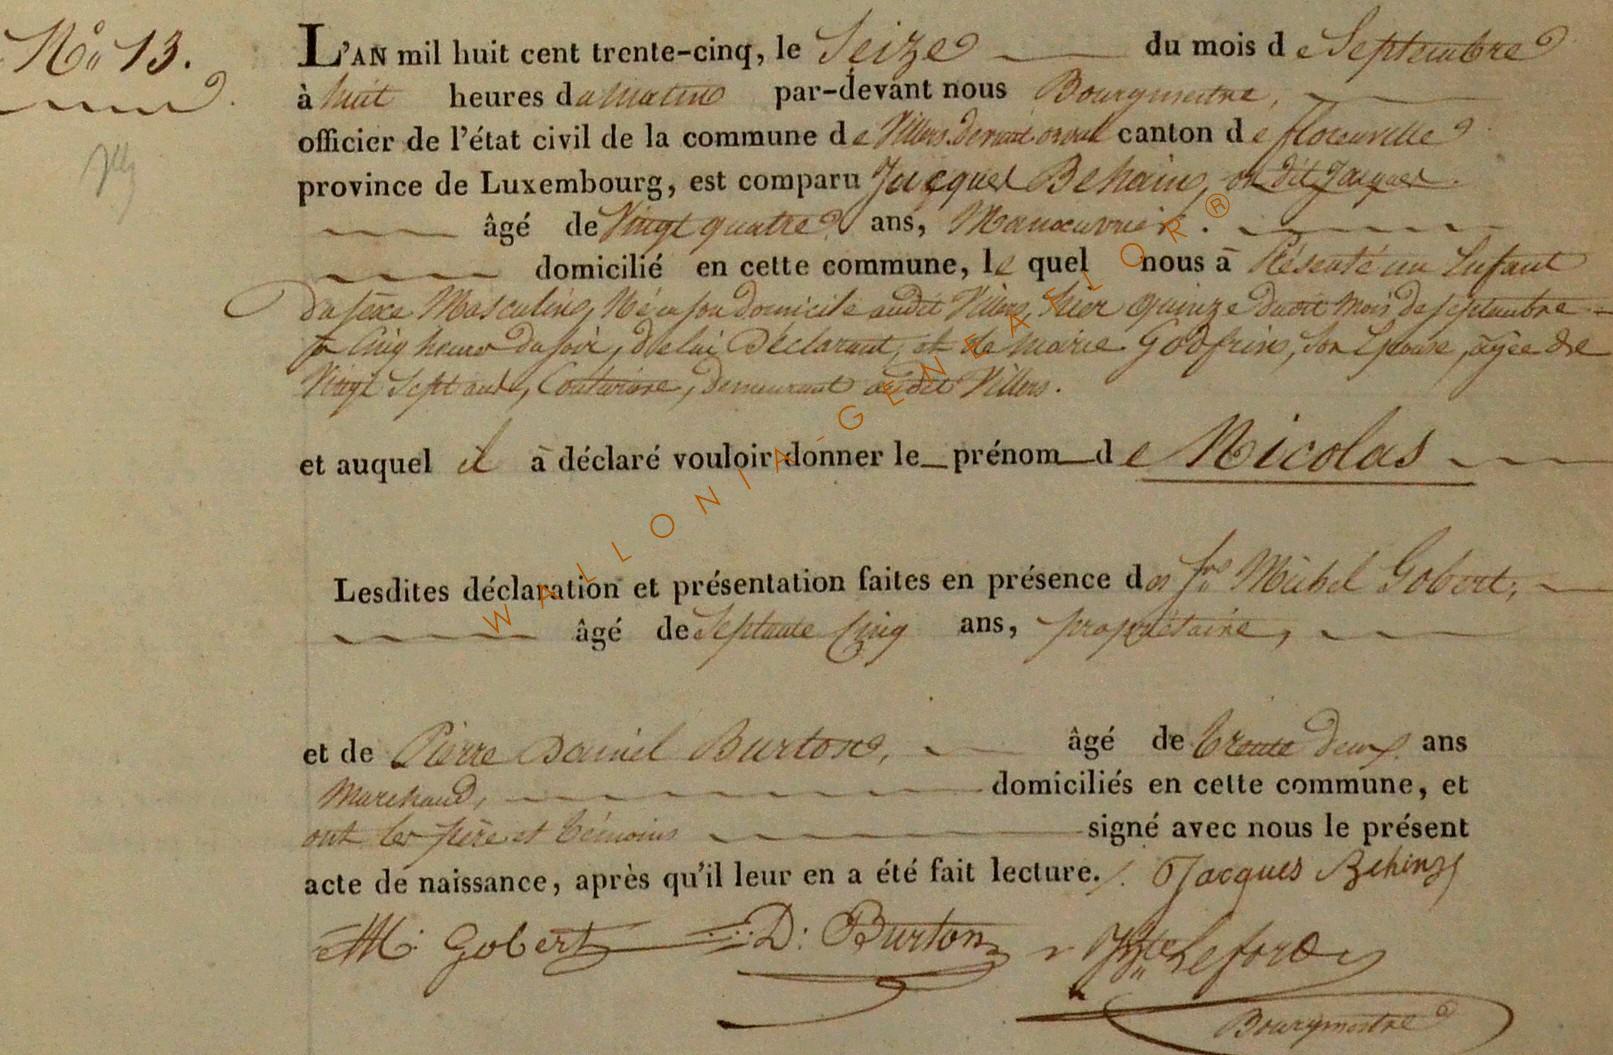 N.º 13.
L'AN mil huit cent trente-cinq, le Seize du mois de Septembre
à huit heures du Matin par-devant nous Bourgmestre,
officier de l'état civil de la commune de Villers devant orval canton de florenville
province de Luxembourg, est comparu Jacques Behain, dit Jacques
âgé de Vingt quatre ans, Manoeuvrier.
domicilié en cette commune, le quel nous à Présenté un Enfant
du sexe Masculin, Né en son domicile audit Villers, hier quinze dudit mois de septembre
Cinq heures du soir, de lui Déclarant, et de Marie Godfrin, son Epouse, agée de
Vingt Sept ans, Couturiere, demeurant audit Villers.
et auquel il à déclaré vouloir donner le prénom de Nicolas
Lesdites déclaration et présentation faites en présence des Srs Michel Gobert,
âgé de Septante Cinq ans, propriétaire,
et de Pierre Daniel Burton, âgé de trente deux ans
Marchand, domiciliés en cette commune, et
ont les père et témoins signé avec nous le présent
acte de naissance, après qu'il leur en a été fait lecture. Jacques Behin
M. Gobert D: Burton
Bourgmestre
WALLONIA-GENEALOR®